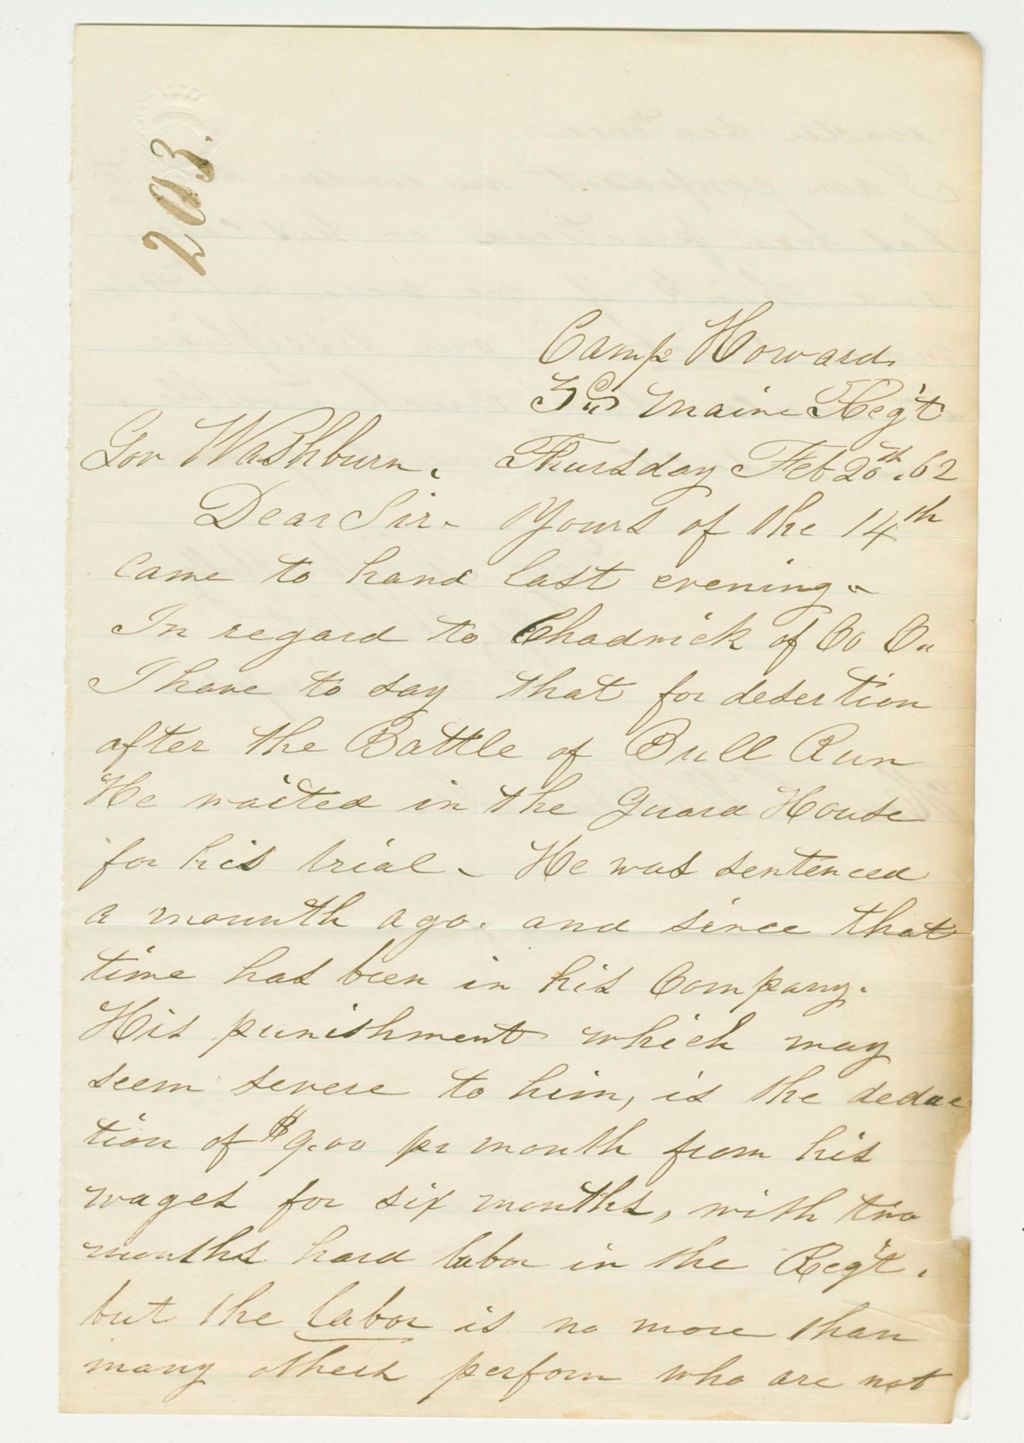 203.
Camp Howard
3rd Maine Reg't
Gov Washburn. Thursday Feb 20th. 62
Dear Sir- Yours of the 14th
came to hand last evening-
In regard to Chadwick of Co C.
I have to say that for desertion
after the Battle of Bull Run
He waited in the Guard House
for his trial- He was sentenced
a mounth ago. and since that
time has been in his Company.
His punishment which may
seem severe to him, is the deduc
tion of $9.00 pr month from his
wages for six months, with two
months hard labor in the Reg't.
but the labor is no more than
many others perform who are not